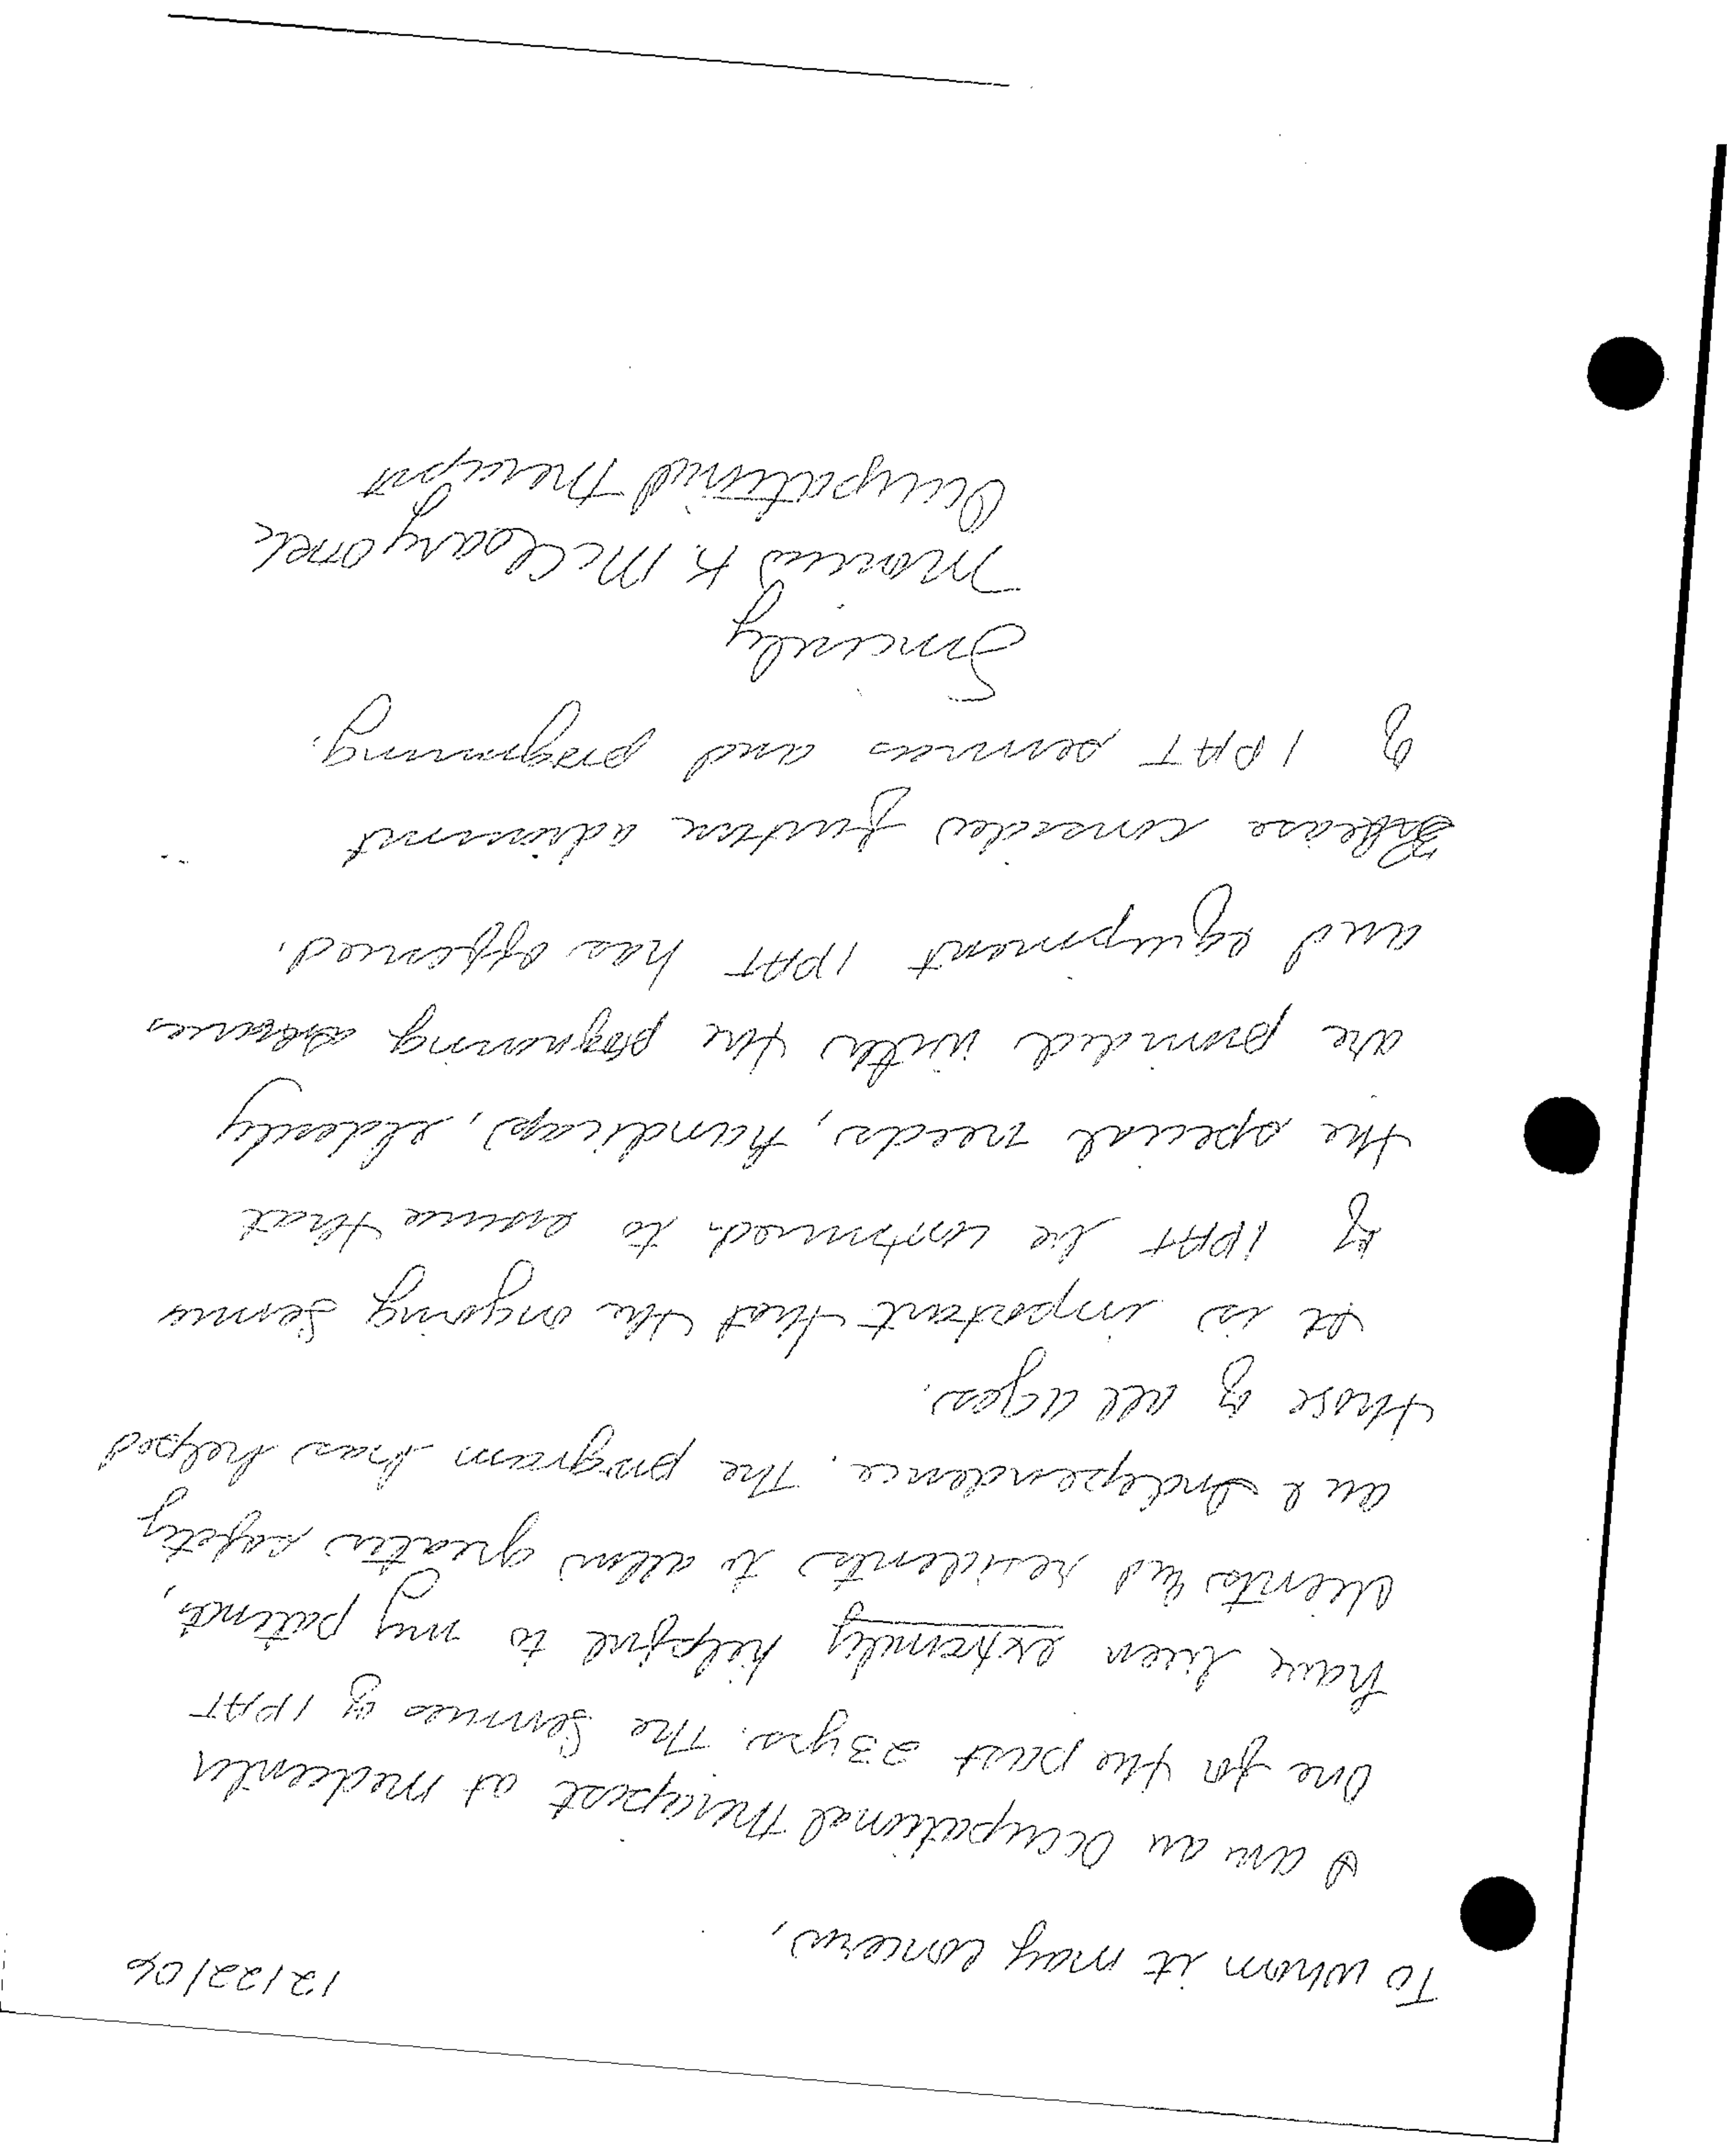 12/22/06
To whom it may concern,
I am an Occupational Therapist at Medcenter
One for the past 23yrs. The Services of IPAT
have been extremely helpful to my patients,
clients and residents to allow greater safety
and Independence. The program has helped
those of all ages.
It is important that the ongoing Services
of IPAT be continued to ensure that
the special needs, handicap, elderly
are provided with the programing
and equipment IPAT has offered.
Please consider further
of IPAT services and programing.
Sincerely
K. McCleary OTR/L
Occupational Therapist